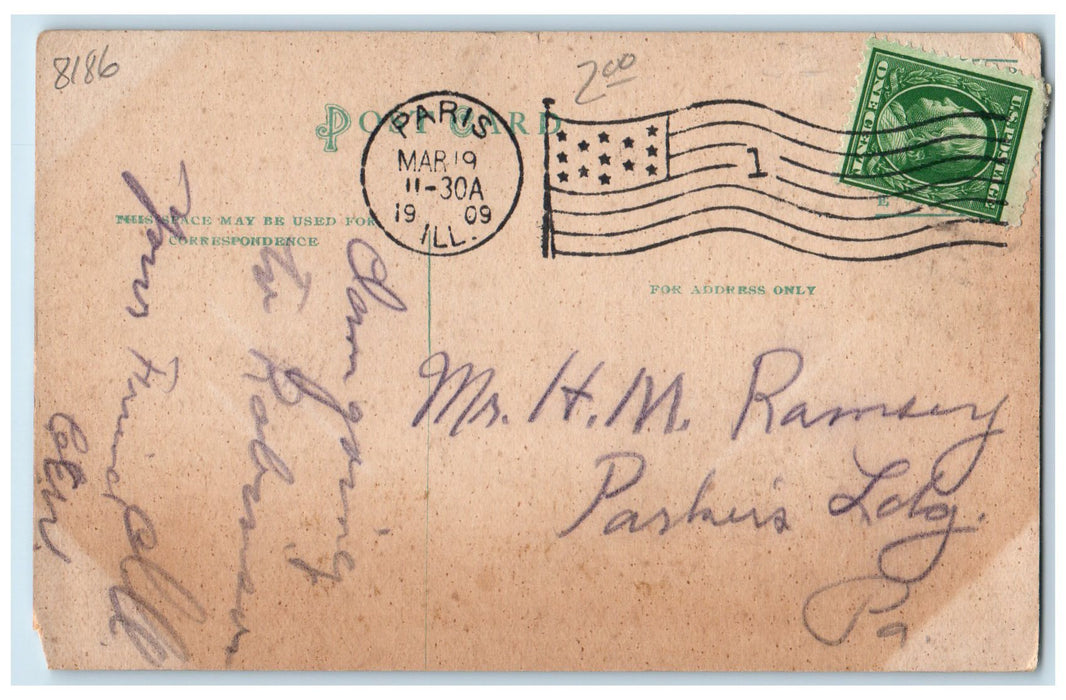 8186
2.00
POST CARD
PARIS
MAR 19
11-30A
19 09
ILL.
1
U.S. POSTAGE
ONE CENT
THIS SPACE MAY BE USED FOR
CORRESPONDENCE
FOR ADDRESS ONLY
Am going
to Robinson
Your Friend
Mr. H. M. Ramsey
Parker's Ldg.
Pa